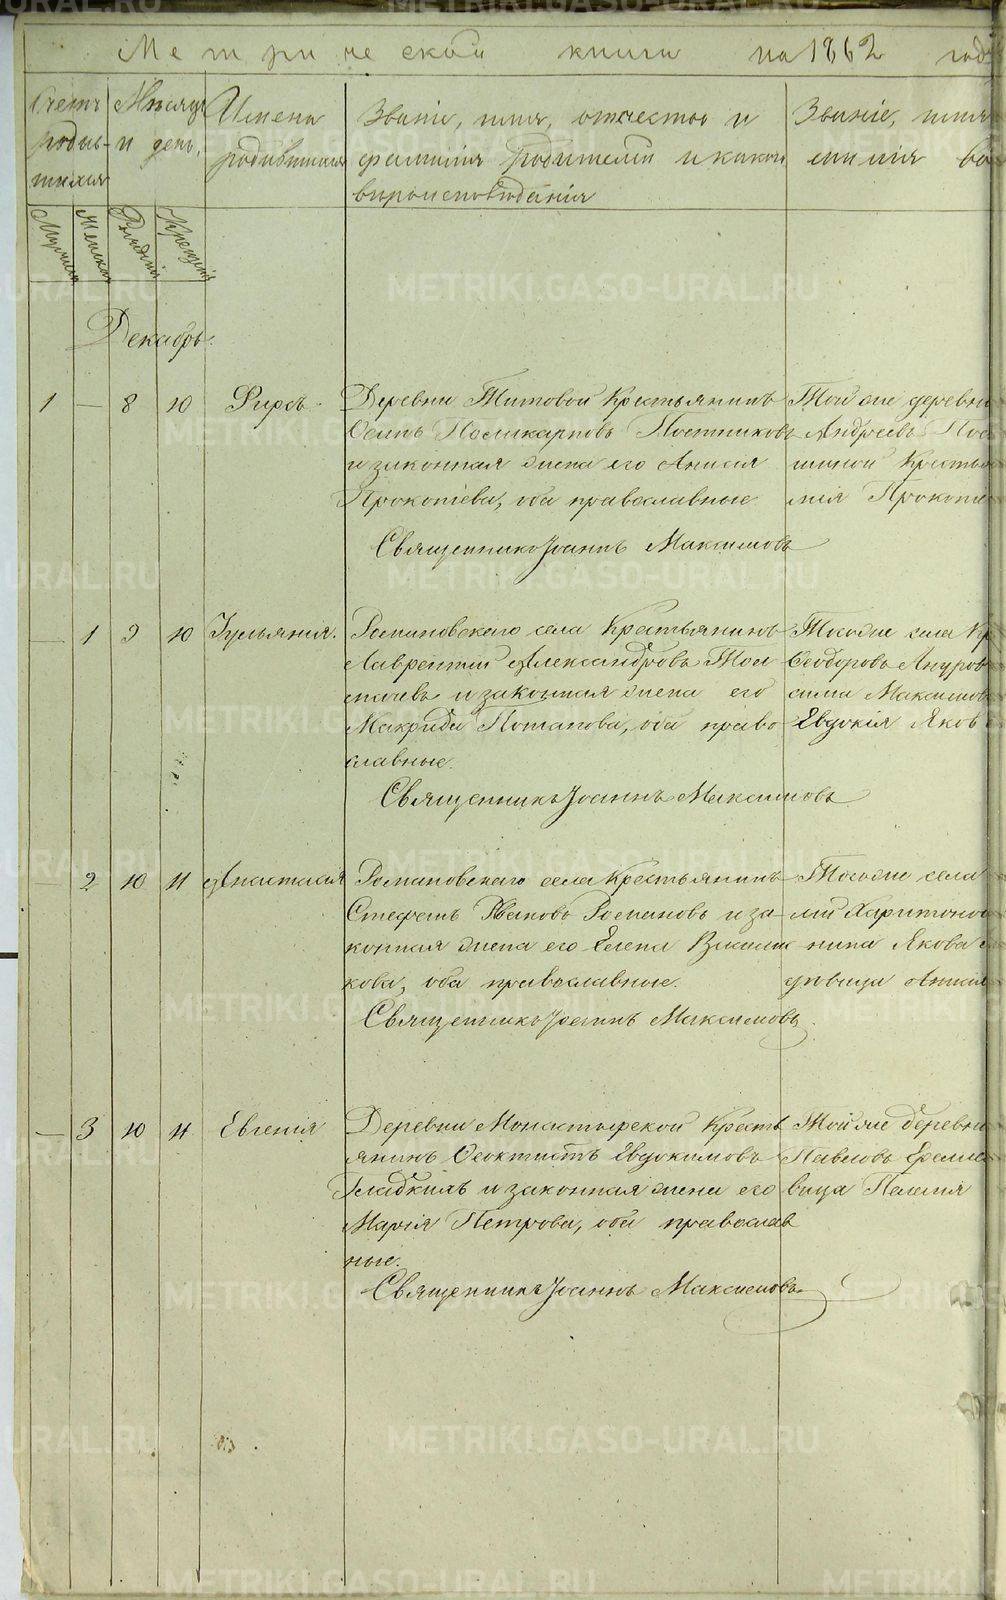 Метрической книги на 1862 год
Счетъ родив-шихся
Мѣсяцъ и день,
Имена родившихся
Званіе, имя, отчество и фамилія родителей и какого вѣроисповѣданія
Званіе, имя
милія во
Мужска
Женска
Рожденія
Крещенія
Декабрь.
1 — 8 10 Фирсъ.
Деревни Титовой Крестьянинъ
Осипъ Поликарповъ Постниковъ
и законная жена его Анисія
Прокопіева, оба православные
Священникъ Іоаннъ Максимовъ
Той же деревни
Андреевъ Пос
шиной Кресть
мія Прокопі
— 1 9 10 Іульянія.
Романовскаго села Крестьянинъ
Лаврентій Александровъ Тол
мачевъ и законная жена его
Макрида Потапова, оба право
славные.
Священникъ Іоаннъ Максимовъ
Тогоже села Кр
Ѳеодоровъ
сима Максимов
Евдокія Яков
— 2 10 11 Анастасія
Романовскаго села Крестьянинъ
Стефанъ Ивановъ Романовъ и за-
конная жена его Елена
кова, оба православные.
Священникъ Іоаннъ Максимовъ
Тогоже села
лій Харитонов
нина Якова
дѣвица
— 3 10 11 Евгенія
Деревни Монастырской Кресть
янинъ Ѳеоктистъ Евдокимовъ
Гладкихъ и законная жена его
Марія Петрова, оба православ
ные.
Священникъ Іоаннъ Максимовъ
Той же деревни
Павловъ
вица Пелагія
METRIKI.GASO-URAL.RU